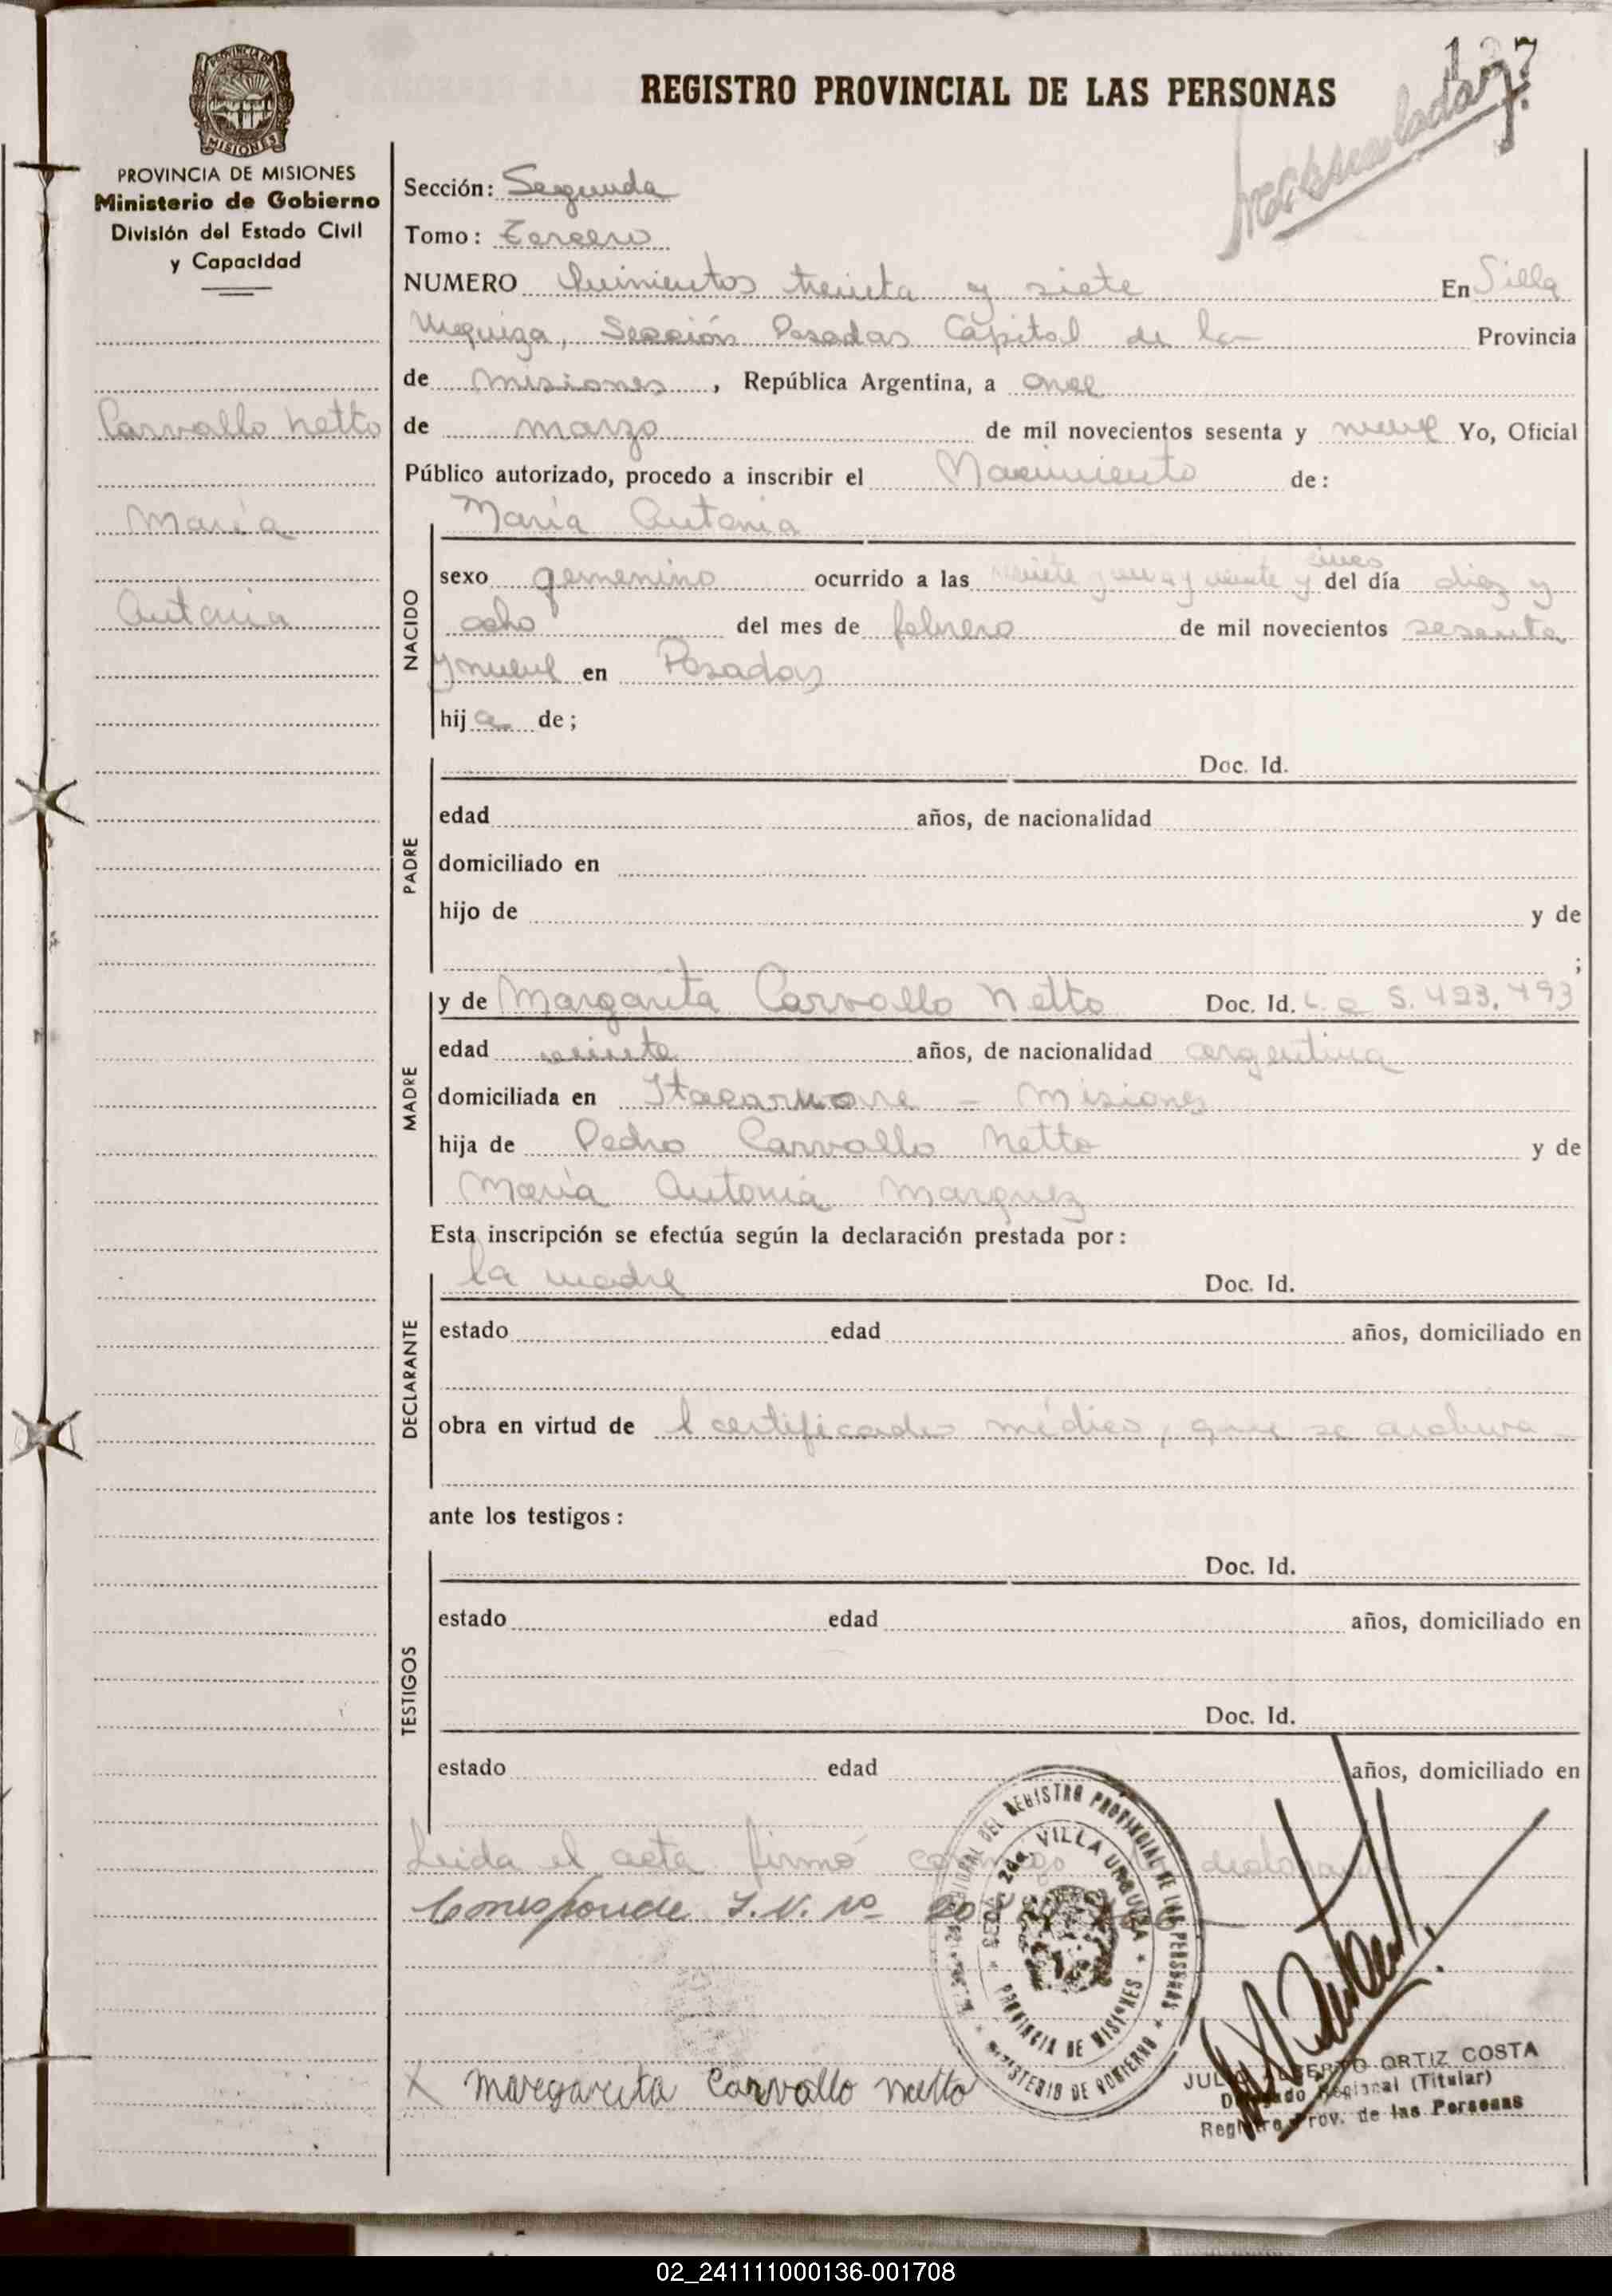 137
REGISTRO PROVINCIAL DE LAS PERSONAS
PROVINCIA DE MISIONES
MISIONES
PROVINCIA DE MISIONES
Ministerio de Gobierno
División del Estado Civil
y Capacidad
Carvallo Netto
María
Antonia
Sección: Segunda
Tomo: Tercero
NUMERO Quinientos treinta y siete En Villa
Urquiza, Sección Posadas Capital de la Provincia
de Misiones, República Argentina, a once
de marzo de mil novecientos sesenta y nueve Yo, Oficial
Público autorizado, procedo a inscribir el Nacimiento de:
NACIDO
María Antonia
cinco
sexo femenino ocurrido a las y veinte y del día diez y
ocho del mes de febrero de mil novecientos sesenta
y nueve en Posadas
hija de;
PADRE
Doc. Id.
edad años, de nacionalidad
domiciliado en
hijo de y de
;
MADRE
y de Margarita Carvallo Netto Doc. Id. L.C 5.493.493
edad veinte años, de nacionalidad argentina
domiciliada en Itacaruare - Misiones
hija de Pedro Carvallo Netto y de
María Antonia Marquez
Esta inscripción se efectúa según la declaración prestada por:
DECLARANTE
la madre Doc. Id.
estado edad años, domiciliado en
obra en virtud de l certificado médico, que se archiva
ante los testigos:
TESTIGOS
Doc. Id.
estado edad años, domiciliado en
Doc. Id.
estado edad años, domiciliado en
Leida el acta firmó conmigo declarante
Corresponde I.N. Nº 20
DEL REGISTRO PROVINCIAL DE LAS PERSONAS
MINISTERIO DE GOBIERNO
SECC. 2da. VILLA URQUIZA
PROVINCIA DE MISIONES
X Margarita Carvallo Netto
JULIO ALBERTO ORTIZ COSTA
Delegado Regional (Titular)
Registro Prov. de las Personas
02_241111000136-001708